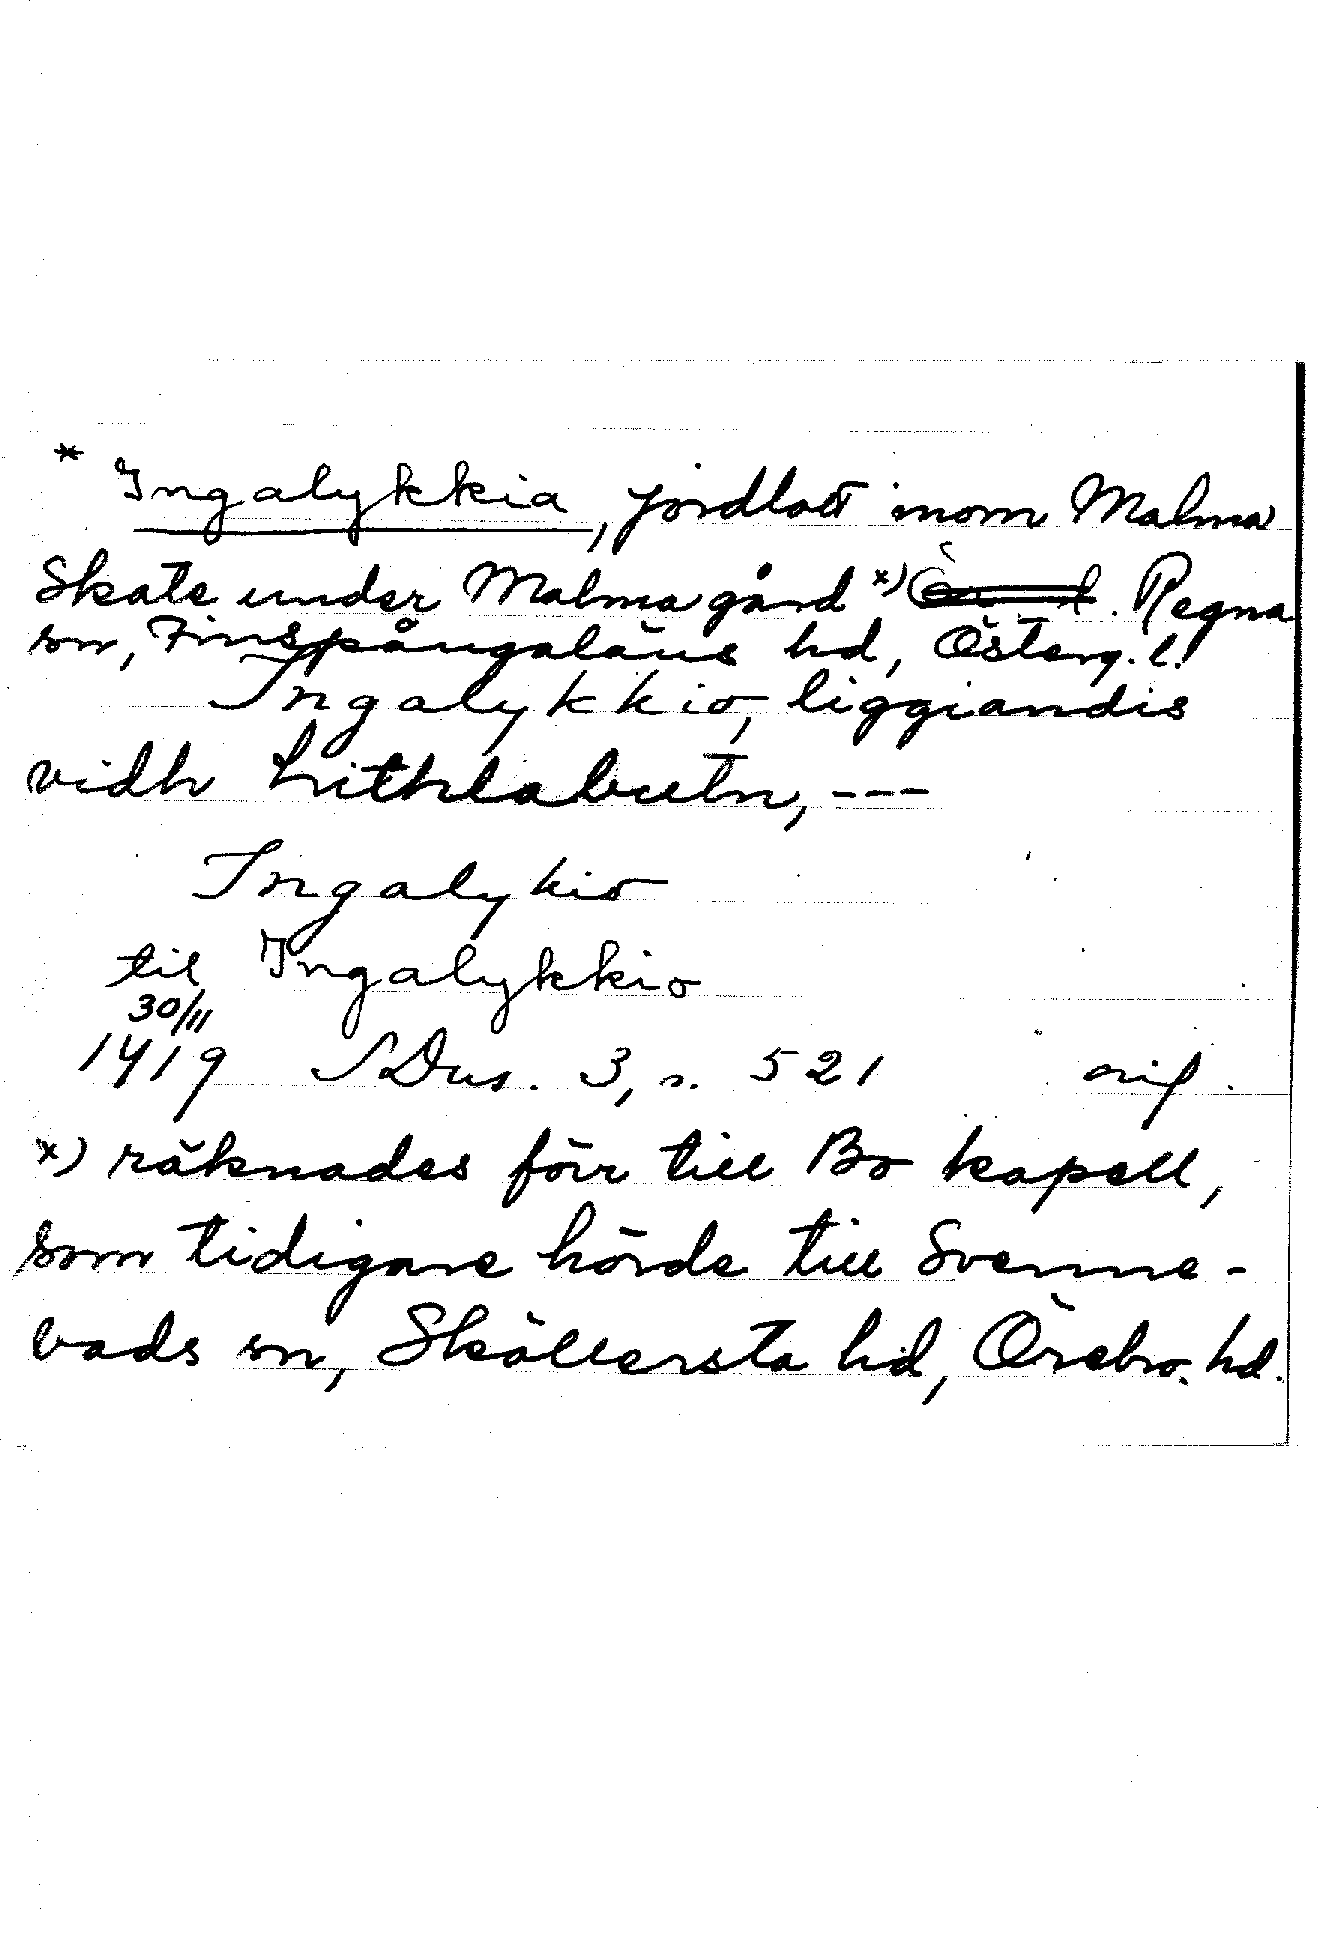 * Ingalykkia, jordlott inom Malma
Skate under Malma gård x) . Regna
sn, Finspångaläns hd, Österg. l.
Ingalykkio, liggiandis
vidh hithlabutn, ---
Ingalykio
til Ingalykkio
30/11
1419 SDns. 3, s. 521 orig.
x) räknades förr till Bo kapell,
som tidigare hörde till Svenne-
vads sn, Sköllersta hd, Örebro. hd.